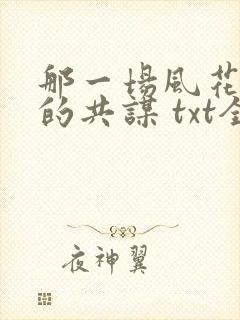 那一場風花
的共謀 txt全
夜神翼